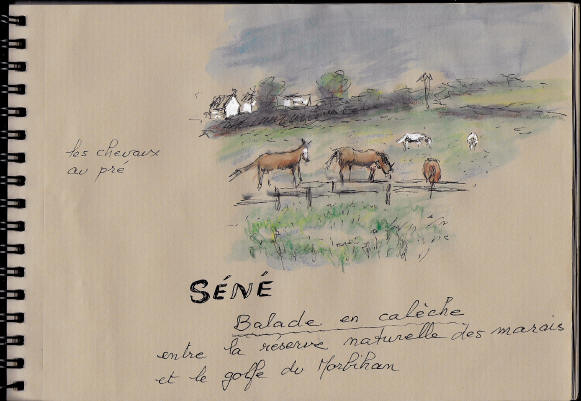 les chevaux
au pré
SÉNÉ
Balade en calèche
entre la réserve naturelle des marais
et le golfe du Morbihan